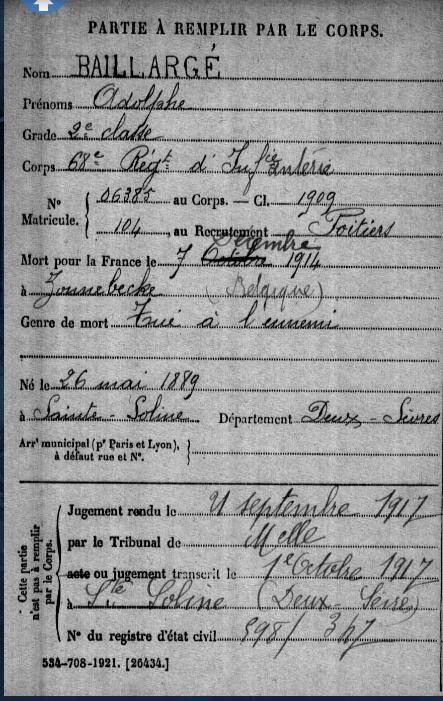 PARTIE À REMPLIR PAR LE CORPS.
Nom BAILLARGÉ
Prénoms Adolphe
Grade 2e classe
Corps 68e Régt d'Inf
N° Matricule. 06385 au Corps. — Cl. 1909
104, au Recrutement Poitiers
Décembre
Mort pour la France le 7 Octobre 1914
à Zonnebecke (Belgique)
Genre de mort Tué à l'ennemi
Né le 26 mai 1889
à Sainte-Soline Département Deux-Sèvres
Arrt municipal (pr Paris et Lyon),
à défaut rue et N°.
Cette partie n'est pas à remplir par le Corps.
Jugement rendu le septembre 1917
par le Tribunal de Melle
acte ou jugement transcrit le 1e Octobre 1917
à Ste Soline (Deux-
N° du registre d'état civil 367
534-708-1921. [26434.]